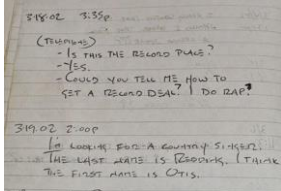 3.18.02 3:35p
(TELEPHONE)
- IS THIS THE RECORD PLACE?
- YES.
- COULD YOU TELL ME HOW TO
GET A RECORD DEAL? I DO RAP.
3.19.02 2:00p
I'm LOOKING FOR A COUNTRY SINGER.
THE LAST NAME IS REDDING. I THINK
THE FIRST NAME IS OTIS.